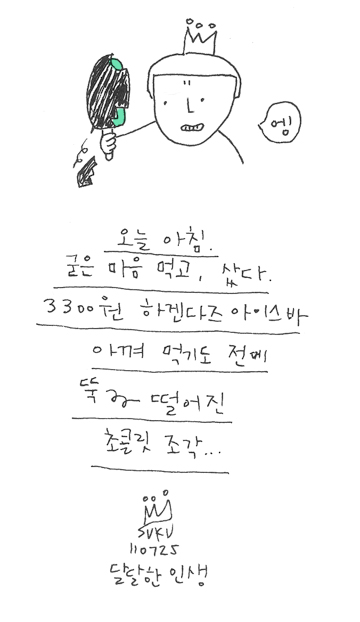 엥!
오늘 아침.
굵은 마음 먹고, 샀다.
3300원 하겐다즈 아이스바
아껴 먹기도 전에
뚝 떨어진
초콜릿 조각...
SUKU
110725
달달한 인생